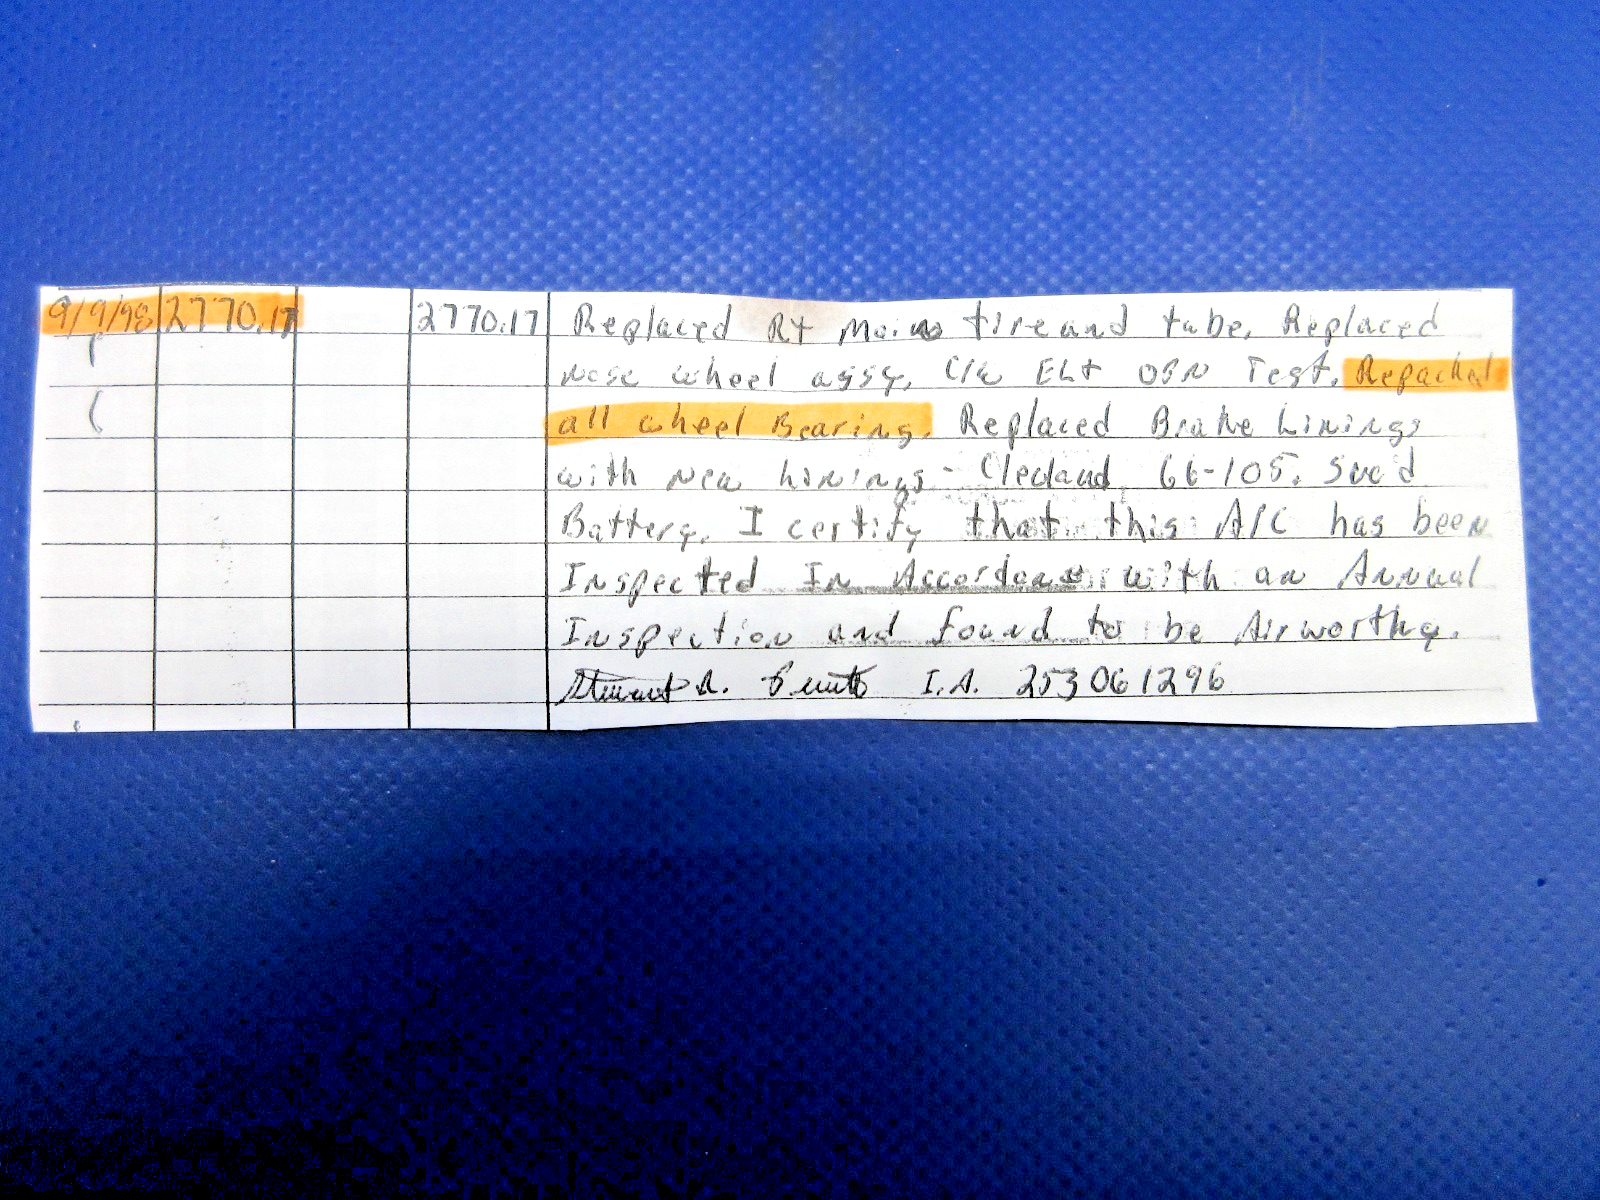 9/9/98 2770.17 2770.17 Replaced Rt Main tire and tube. Replaced
nose wheel assy. C/W ELT OPN Test. Repacked
all wheel Bearing. Replaced Brake Linings
with new Linings - Cleveland 66-105. Svc'd
Battery. I certify that this A/C has been
Inspected In Accordance with an Annual
Inspection and found to be Airworthy.
Stewart A. I.A. 253061296